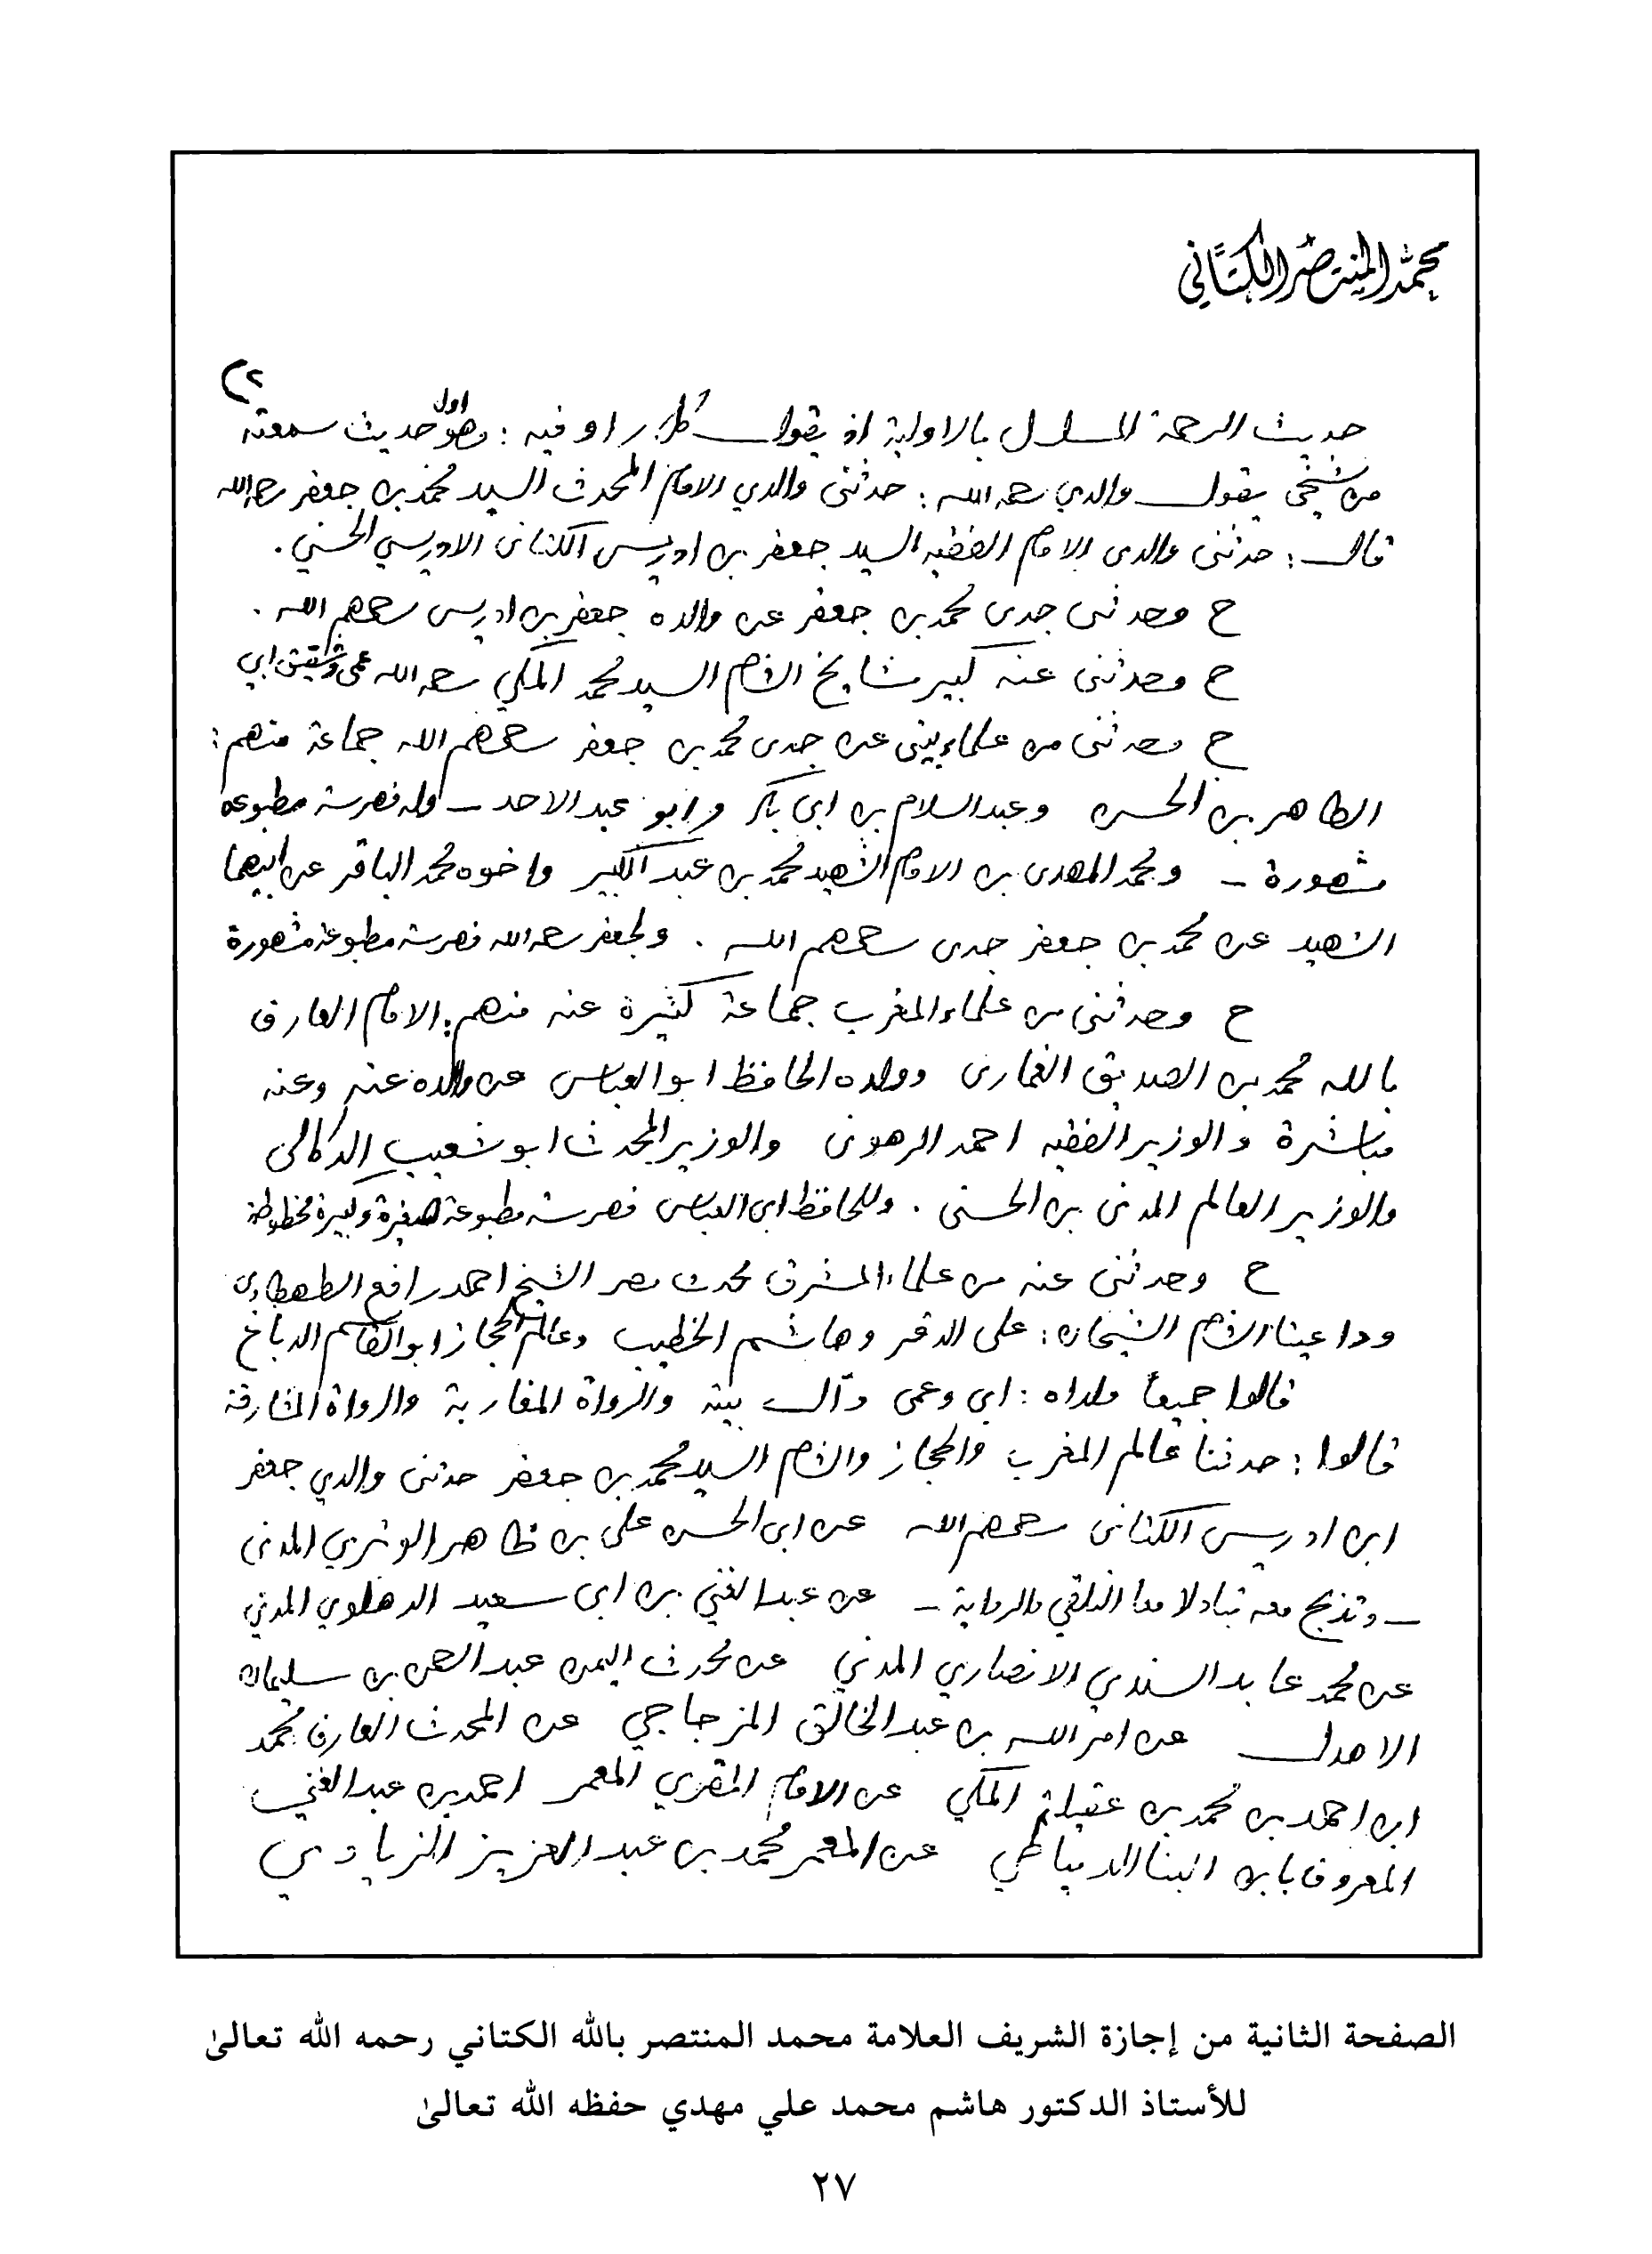 محمد المنتصر الكتاني
٢)
حديث الرحمة المسلسل بالاولية اذ يقول كل راو فيه : وهو اول حديث سمعته
من شيخي يقول والدي رحمه الله : حدثني والدي الامام المحدث السيد محمد بن جعفر رحمه الله
قال : حدثني والدي الامام الفقيه السيد جعفر بن ادريس الكتاني الادريسي الحسني .
ح وحدثني جدي محمد بن جعفر عن والده جعفر بن ادريس رحمهم الله .
ح وحدثني عنه كبير مشايخ الشام السيد محمد المكي رحمه الله عمي وشقيق ابي
ح وحدثني من علماء بيتي عن جدي محمد بن جعفر رحمهم الله جماعة منهم :
الطاهر بن الحسن وعبد السلام بن ابي بكر وابو عبد الاحد – وله فهرسة مطبوعة
مشهورة – ومحمد المهدي بن الامام الشهيد محمد بن عبد الكبير واخوه محمد الباقر عن ابيهما
الشهيد عن محمد بن جعفر جدي رحمهم الله . ولجعفر رحمه الله فهرسة مطبوعة مشهورة
ح وحدثني من علماء المغرب جماعة كثيرة عنه منهم : الامام العارف
بالله محمد بن الصديق الغماري وولده الحافظ ابو العباس عن والده عنه وعنه
مباشرة والوزير الفقيه احمد الرهوني والوزير المحدث ابو شعيب الدكالي
والوزير العالم المدني بن الحسني . وللحافظ ابي العباس فهرسة مطبوعة صغيرة وكبيرة مخطوطة
ح وحدثني عنه من علماء المشرق محدث مصر الشيخ احمد رافع الطهطاوي
وداعيتا الشام الشيخان : علي الدقر وهاشم الخطيب وعالم الحجاز ابو القاسم الدباغ
قالوا جميعا ولداه : ابي وعمي وآل بيته والرواة المغاربة والرواة المشارقة
قالوا : حدثنا عالم المغرب والحجاز والشام السيد محمد بن جعفر حدثني والدي جعفر
ابن ادريس الكتاني رحمهم الله عن ابي الحسن علي بن ظاهر الوتري المدني
– وتدبج معه تبادلا معا التلقي والرواية – عن عبد الغني بن ابي سعيد الدهلوي المدني
عن محمد عابد السندي الانصاري المدني عن محدث اليمن عبد الرحمن بن سليمان
الاهدل عن امر الله بن عبد الخالق المزجاجي عن المحدث العارف محمد
ابن احمد بن محمد بن عقيلة المكي عن الامام المقري المعمر احمد بن عبد الغني
المعروف بابن البنا الدمياطي عن المعمر محمد بن عبد العزيز الزيادي
الصفحة الثانية من إجازة الشريف العلامة محمد المنتصر بالله الكتاني رحمه الله تعالىٰ
للأستاذ الدكتور هاشم محمد علي مهدي حفظه الله تعالىٰ
٢٧